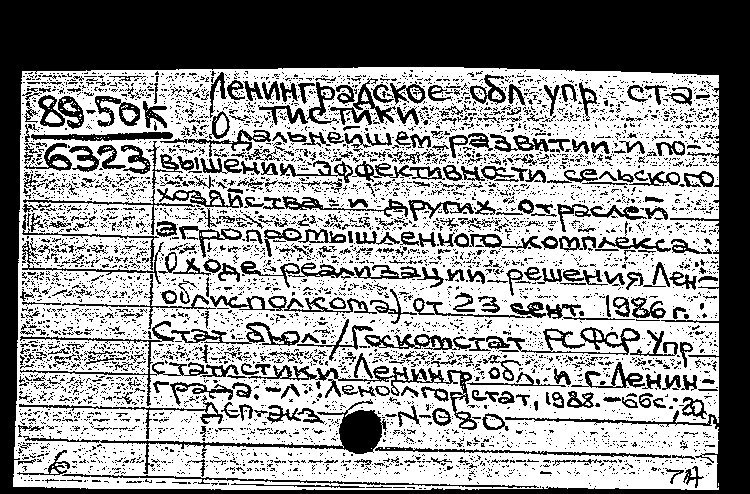 Ленинградское обл. упр. ста-
89-50К тистики.
О дальнейшем развитии и по-
6323 вышении эффективности сельского
хозяйства и других отраслей
агропромышленного комплекса:
(О ходе реализации решения Лен-
облисполкома) от 23 сент. 1986 г.:
Стат. бюл. / Госкомстат РСФСР. Упр.
статистики Ленингр. обл. и г. Ленин-
града. - Л.: Леноблгорстат, 1988. - 66с.;
ДСП экз N-080.
6